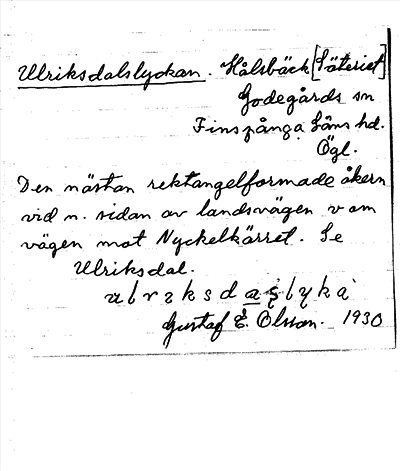 Ulriksdalslyckan. Hålsbäck [Säteriet]
Godegårds sn
Finspånga läns hd.
Ögl.
Den nästan rektangelformade åkern
vid n. sidan av landsvägen v om
vägen mot Nyckelkärret. Se
Ulriksdal.
Gustaf E. Olsson. 1930